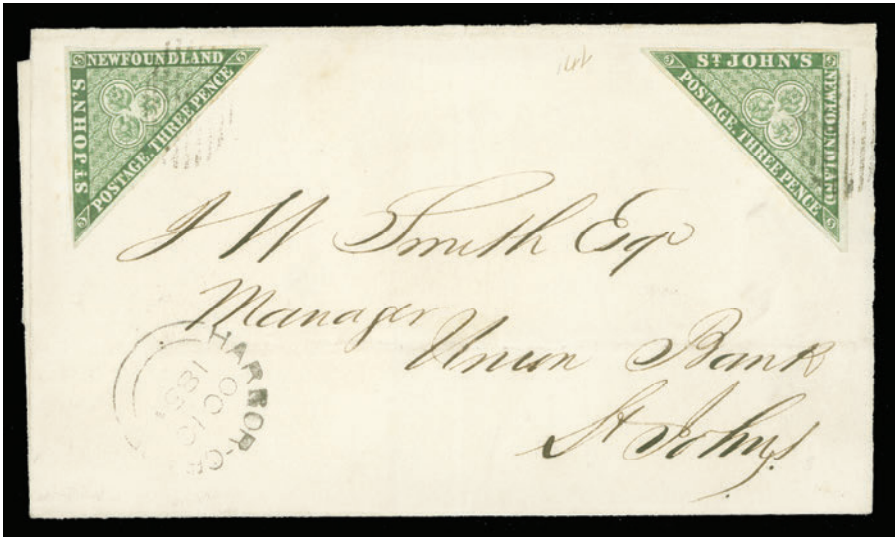 NEWFOUNDLAND
ST JOHN'S
POSTAGE. THREE PENCE
ST JOHN'S
NEWFOUNDLAND
POSTAGE. THREE PENCE
J W Smith Esqr
Manager
Union Bank
St Johns
HARBOR-GR